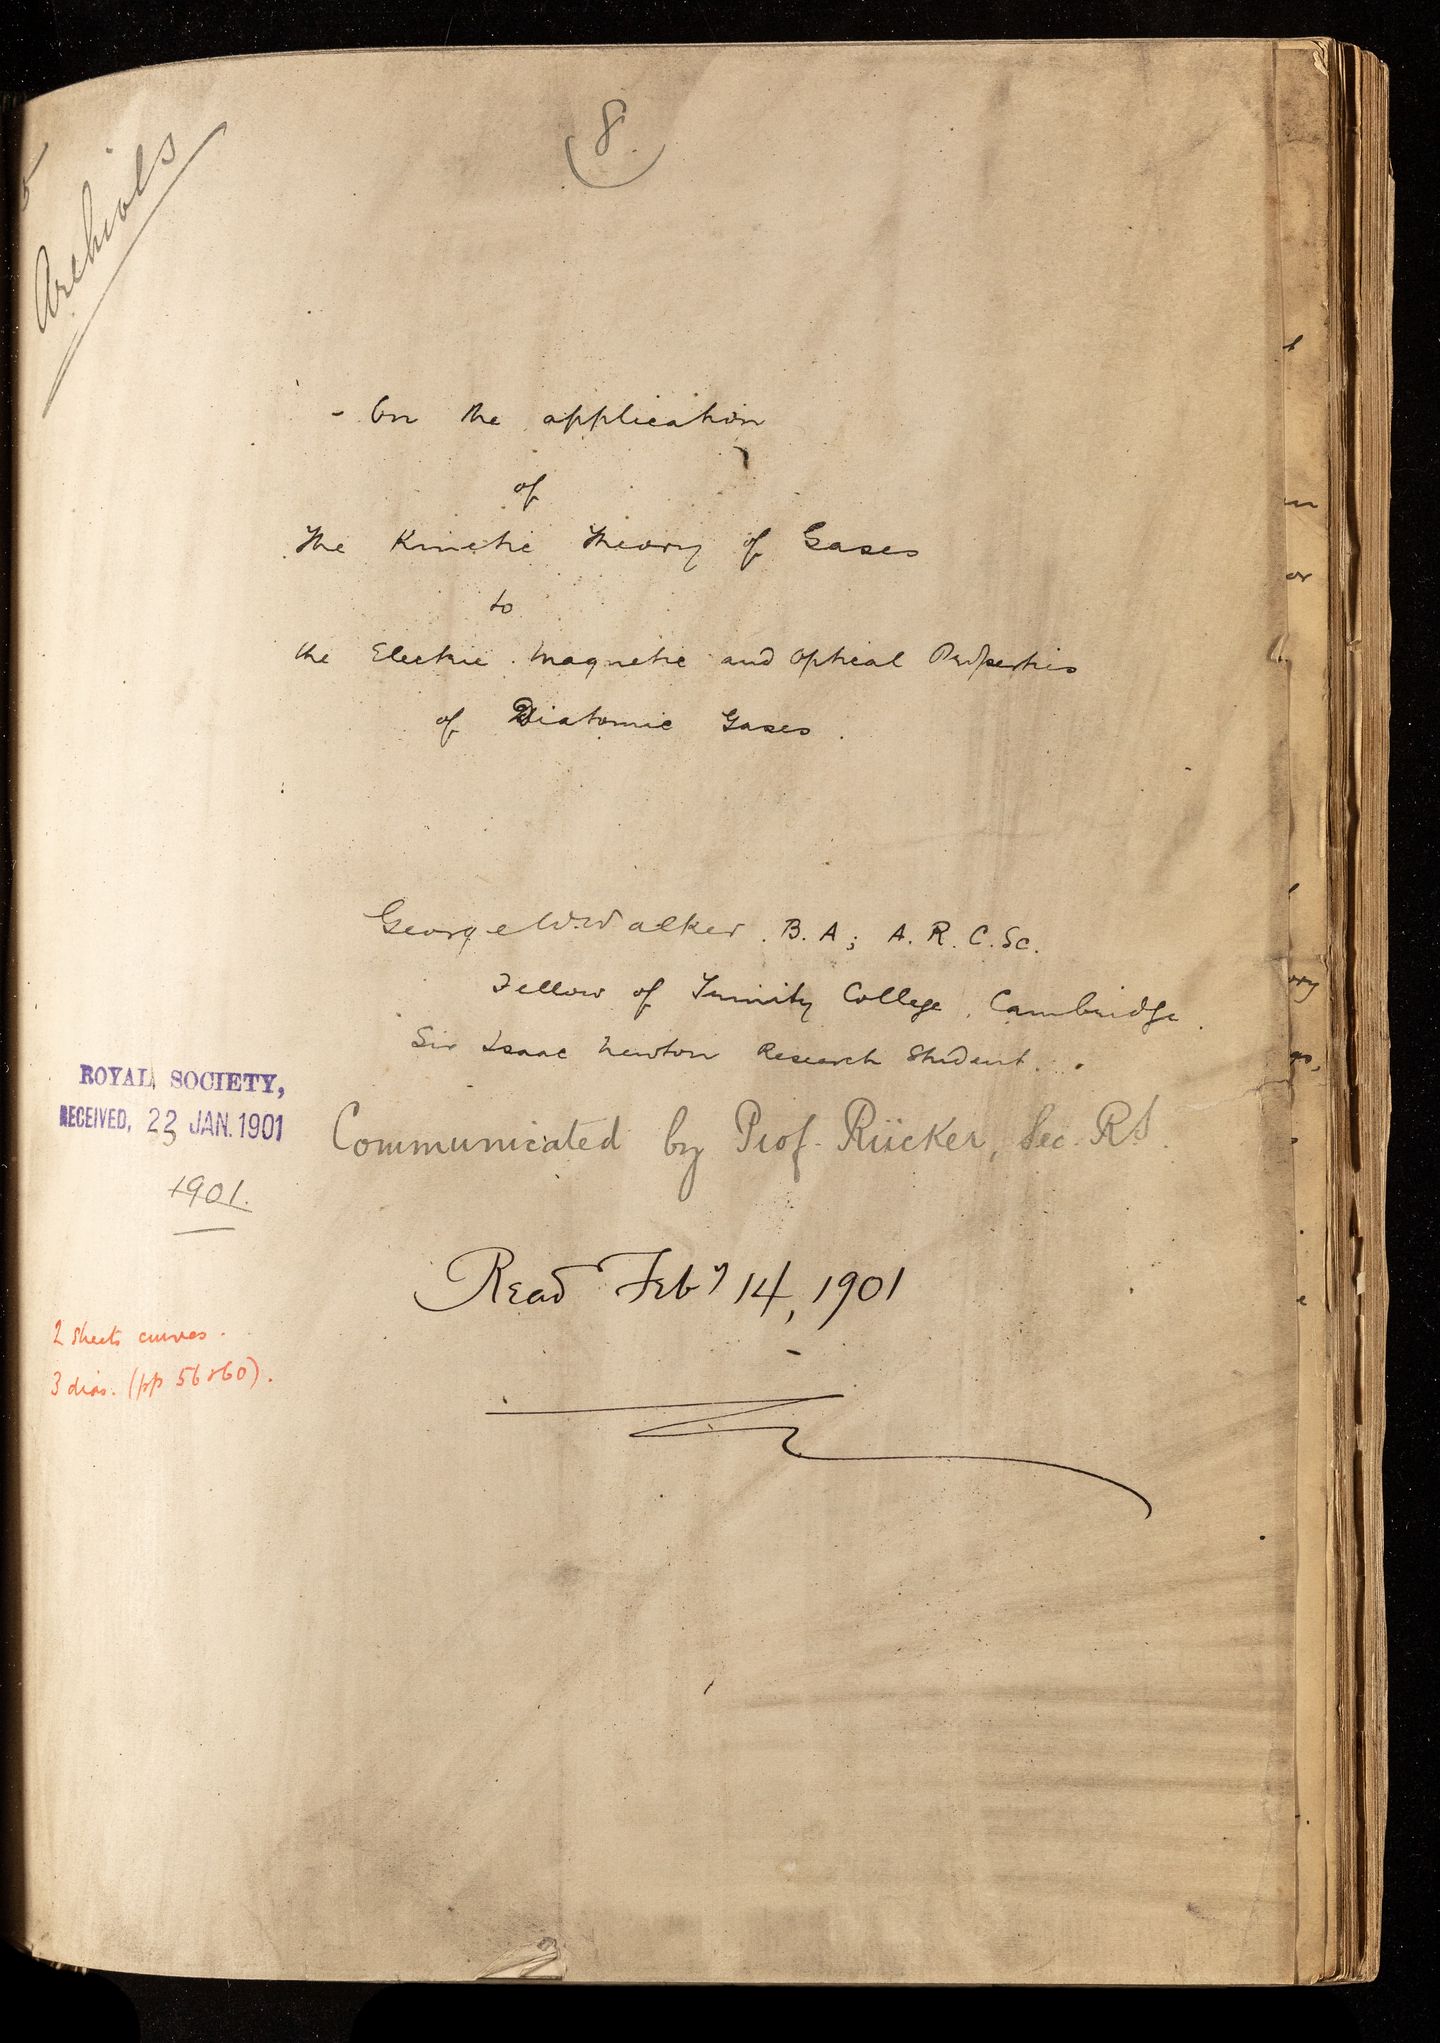 8
Archives
- On the application
of
The Kinetic Theory of Gases
to
the Electric Magnetic and Optical Properties
of Diatomic Gases.
George W. Walker. B.A; A.R.C.Sc.
Fellow of Trinity College, Cambridge.
Sir Isaac Newton Research Student.
ROYAL SOCIETY,
RECEIVED, 23 JAN. 1901
1901.
Communicated by Prof. Rücker, Sec. R.S.
Read Feby 14, 1901
2 sheets curves.
3 dias. (pp 56 & 60).